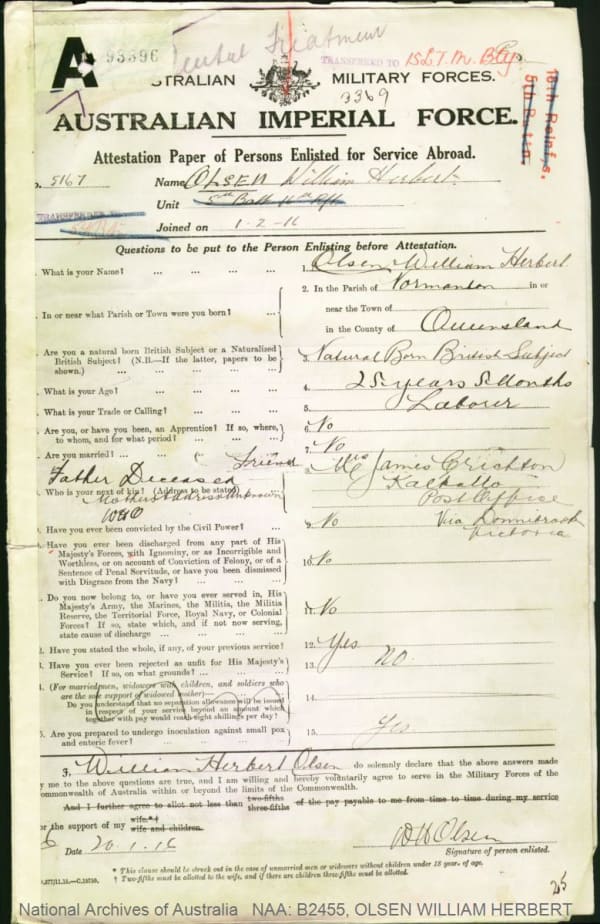 A 93396 Dental Treatment
TRANSFERRED TO 15 L.T.M. Bty
STRALIAN MILITARY FORCES.
3369
16th Reinfs.
5th Battn.
AUSTRALIAN IMPERIAL FORCE.
Attestation Paper of Persons Enlisted for Service Abroad.
o. 5167 Name OLSEN William Herbert.
Unit 5th Batt 16th Rfts
TRANSFERRED TO
Joined on 1-2-16
Questions to be put to the Person Enlisting before Attestation.
. What is your Name? ... ... ... ... 1. Olsen William Herbert
. In or near what Parish or Town were you born? ... 2. In the Parish of Normanton in or
near the Town of
in the County of Queensland
. Are you a natural born British Subject or a Naturalized
British Subject? (N.B.—If the latter, papers to be
shown.) ... ... ... ... 3. Natural Born British Subject
. What is your Age? ... ... ... ... 4. 25 years 5 Months
. What is your Trade or Calling? ... ... ... 5. Labour
. Are you, or have you been, an Apprentice? If so, where,
to whom, and for what period? ... ... ... 6. No
. Are you married? ... ... ... 7. No
Father Deceased Friend 8. Mrs James Crichton
. Who is your next of kin? (Address to be stated) Kalkallo
Mothers address unknown Post Office
WHO
. Have you ever been convicted by the Civil Power? ... 9. No Via Donnibrook
Victoria
. Have you ever been discharged from any part of His
Majesty's Forces, with Ignominy, or as Incorrigible and
Worthless, or on account of Conviction of Felony, or of a
Sentence of Penal Servitude, or have you been dismissed
with Disgrace from the Navy? ... ... ... 10. No
. Do you now belong to, or have you ever served in, His
Majesty's Army, the Marines, the Militia, the Militia
Reserve, the Territorial Force, Royal Navy, or Colonial
Forces? If so, state which, and if not now serving,
state cause of discharge ... ... ... 11. No
2. Have you stated the whole, if any, of your previous service? 12. Yes
3. Have you ever been rejected as unfit for His Majesty's
Service? If so, on what grounds? ... ... 13. No.
4. (For married men, widowers with children, and soldiers who
are the sole support of widowed mother)—
Do you understand that no separation allowance will be issued
in respect of your service beyond an amount which
together with pay would reach eight shillings per day? 14.
5. Are you prepared to undergo inoculation against small pox
and enteric fever? ... ... ... 15. Yes
I, William Herbert Olsen do solemnly declare that the above answers made
y me to the above questions are true, and I am willing and hereby voluntarily agree to serve in the Military Forces of the
ommonwealth of Australia within or beyond the limits of the Commonwealth.
And I further agree to allot not less than two-fifths three-fifths of the pay payable to me from time to time during my service
or the support of my wife.*† wife and children.
Date 20.1.16 W H Olsen
Signature of person enlisted.
* This clause should be struck out in the case of unmarried men or widowers without children under 18 year. of age.
† Two-fifths must be allotted to the wife, and if there are children three-fifths must be allotted.
25
National Archives of Australia NAA: B2455, OLSEN WILLIAM HERBERT